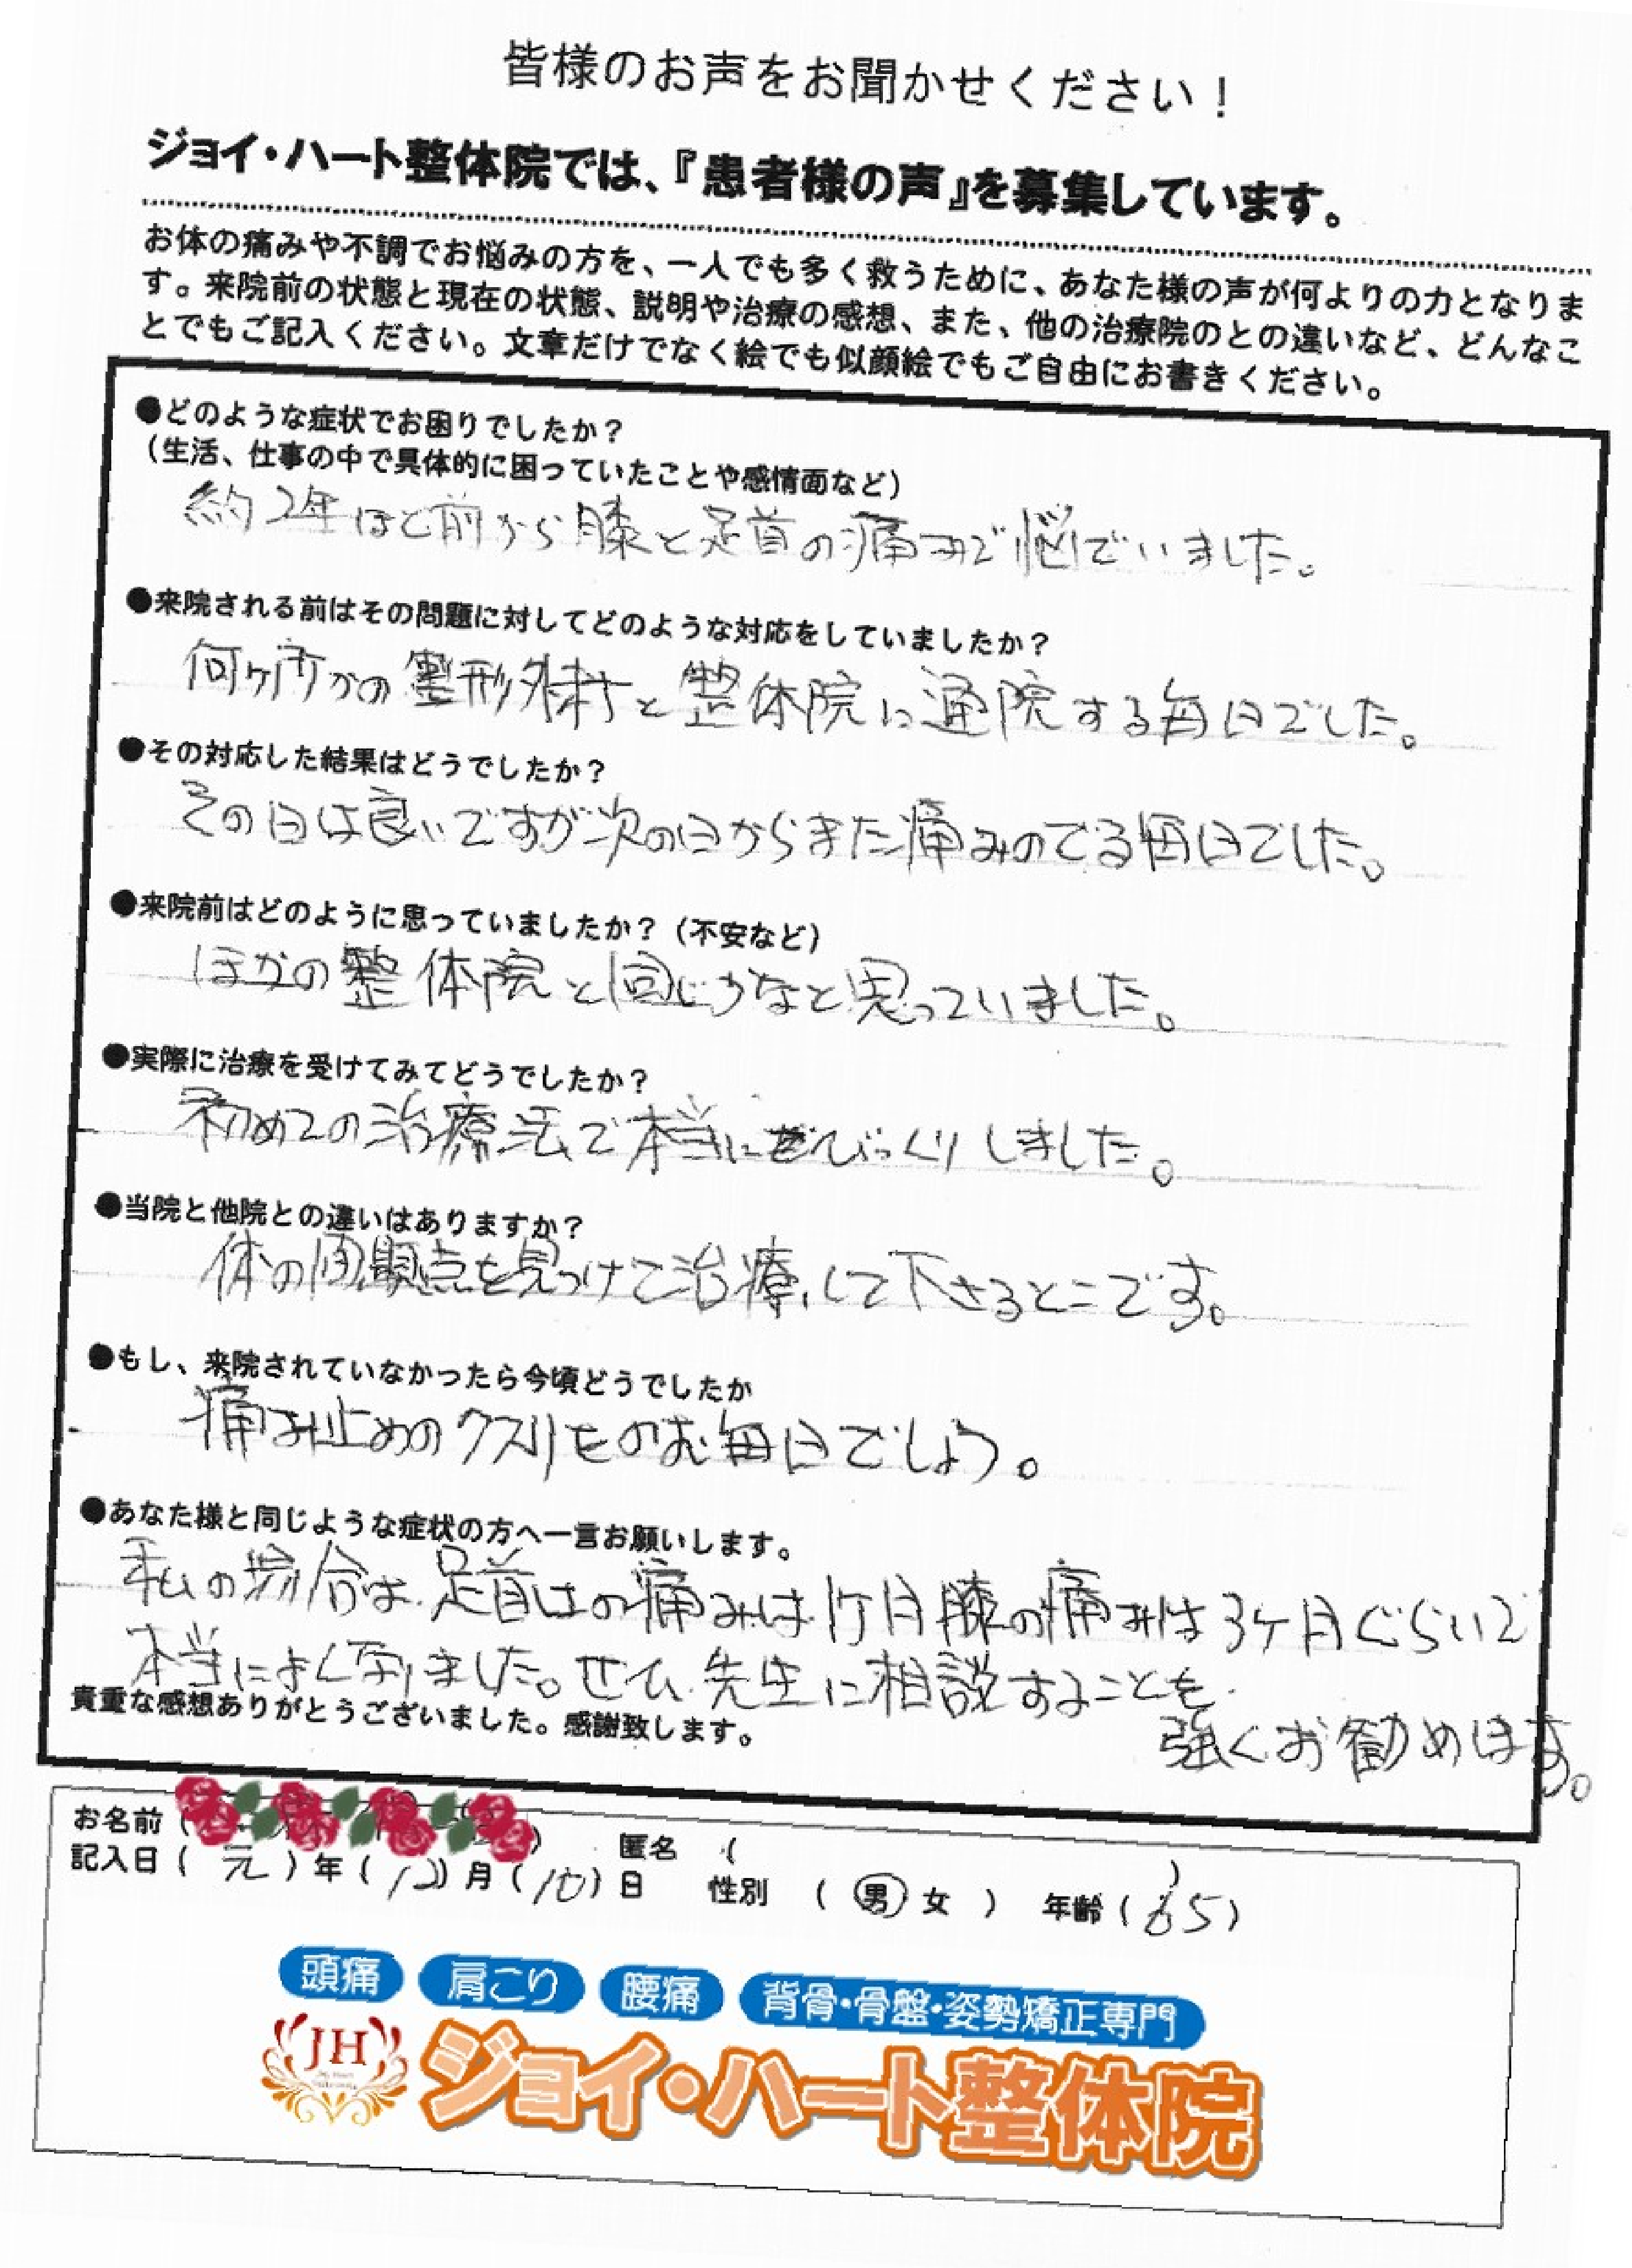 皆様のお声をお聞かせください！
ジョイ・ハート整体院では、『患者様の声』を募集しています。
お体の痛みや不調でお悩みの方を、一人でも多く救うために、あなた様の声が何よりの力となりま
す。来院前の状態と現在の状態、説明や治療の感想、また、他の治療院のとの違いなど、どんなこ
とでもご記入ください。文章だけでなく絵でも似顔絵でもご自由にお書きください。
●どのような症状でお困りでしたか？
（生活、仕事の中で具体的に困っていたことや感情面など）
約2年ほど前から膝と足首の痛みで悩でいました。
●来院される前はその問題に対してどのような対応をしていましたか？
何ヶ所かの整形外科と整体院に通院する毎日でした。
●その対応した結果はどうでしたか？
その日は良いですが次の日からまた痛みのでる毎日でした。
●来院前はどのように思っていましたか？（不安など）
ほかの整体院と同じかなと思っていました。
●実際に治療を受けてみてどうでしたか？
初めての治療法で本当にびっくりしました。
●当院と他院との違いはありますか？
体の問題点を見つけて治療して下さるとこです。
●もし、来院されていなかったら今頃どうでしたか
痛み止めのクスリをのむ毎日でしょう。
●あなた様と同じような症状の方へ一言お願いします。
私の場合は足首はの痛みは1ケ月膝の痛みは3ケ月ぐらいで
本当によく写りました。ぜひ先生に相談することを
強くお勧めます。
貴重な感想ありがとうございました。感謝致します。
お名前（ ） 匿名（ ）
記入日（元）年（12）月（10）日 性別（男 女） 年齢（65）
頭痛 肩こり 腰痛 背骨・骨盤・姿勢矯正専門
JH
ジョイ・ハート整体院